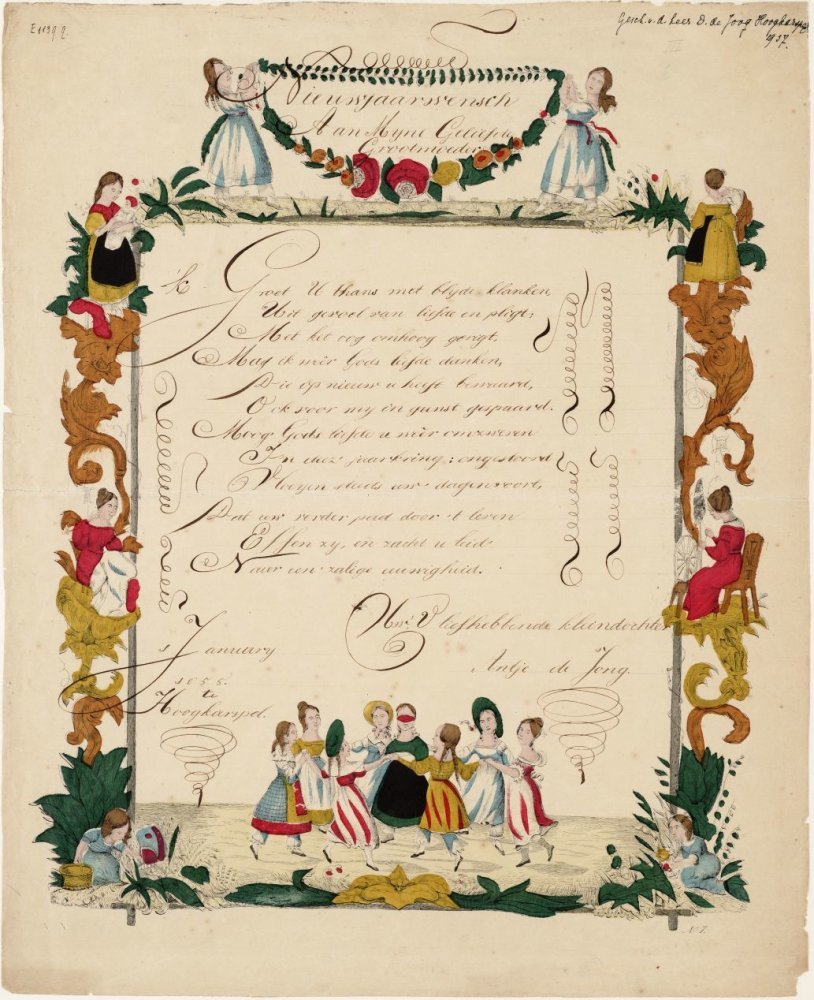 E 1139 q.
Gesch. v. d. heer D. de Jong Hoogkarspel
1937.
Nieuwjaarwensch
Aan Myne Geliefde
Grootmoeder
'k Groet U thans met blyde klanken,
Uit gevoel van liefde en pligt;
Met het oog omhoog gerigt,
Mag ik wêr Gods liefde danken,
Die op nieuw u heeft bewaard,
Ook voor my in gunst gespaard.
Moog Gods liefde u wêr omzweven
In deez' jaarkring; ongestoord
Vloeyen steeds uw dagen voort,
Dat uw verder pad door 't leven
Effen zy, en zacht u leid
Naer een zalige euwigheid.
Uw Liefhebbende kleindochter
Antje de Jong.
1 January
1855.
te
Hoogkarspel.
No. 7.